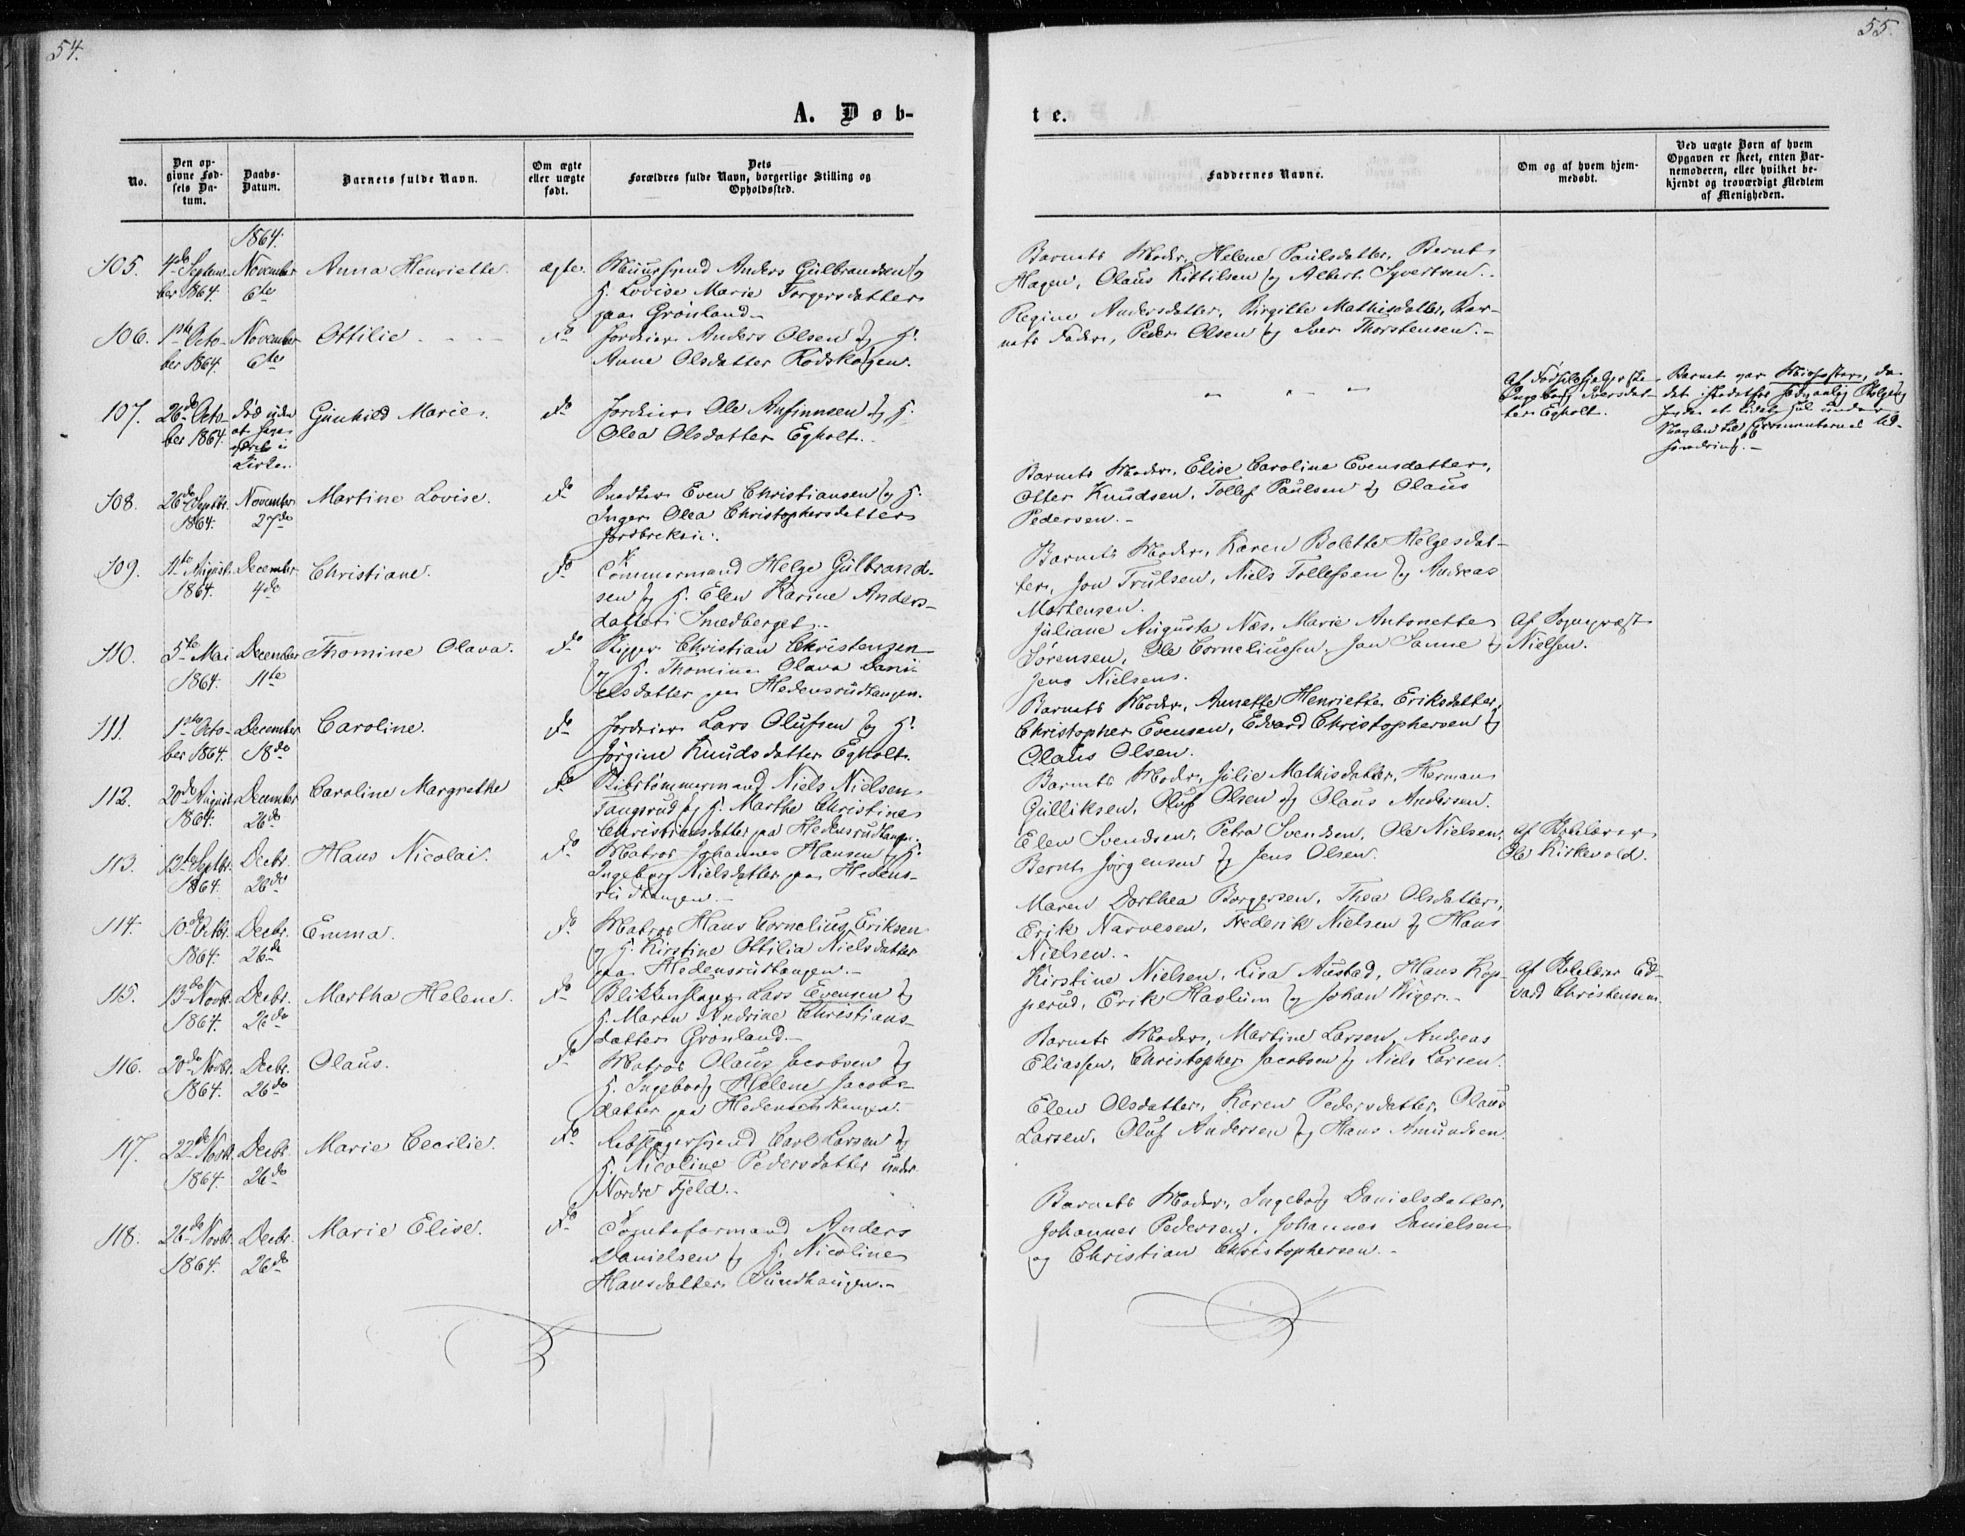 54.
55.
A. Døb-
te.
No.
Den op-
givne Fød-
sels Da-
tum.
Daabs-
Datum.
Barnets fulde Navn.
Om ægte
eller uægte
født.
Dets
Forældres fulde Navn, borgerlige Stilling og
Opholdssted.
Faddernes Navne.
Om og af hvem hjem-
medøbt.
Ved uægte Børn af hvem
Opgaven er skeet, enten Bar-
nemoderen, eller hvilket be-
kjendt og troværdigt Medlem
af Menigheden.
1864.
105. 4de Septem- November Anna Henriette. ægte. Muursvend Anders Gulbrandsen og
ber 1864. 6te H. Lovise Marie Torgersdatter
paa Grönland.
Barnets Moder, Helene Paulsdatter, Bernt
Hagen, Olaus Kittilsen og Albert Syvertsen.
106. 1ste Octo- November Ottilie do Jordeier Anders Olsen og H.
ber 1864. 6te Anne Olsdatter Rodskogen.
Regine Andersdatter, Birgitte Mathisdatter, Bar-
nets Fader, Peder Olsen og Iver Thorstensen.
107. 26de Octo- Død uden Gunhild Marie. do Jordeier Ole Anfinnsen og H.
ber 1864. at Olea Olsdatter Egholt.
i
Kirke.
" " "
Af
Ingeborg Iversdat-
ter Egholt.
Barnet var
det istedetfor
et lidet Hul under
Navlen til Excrementernes Ud-
108. 26de Septbr. November Martine Lovise. do Snedker Even Christiansen og H.
1864. 27de Inger Olea Christophersdatter
Jordbrekke.
Barnets Moder, Elise Caroline Evensdatter,
Otter Knudsen, Tollef Paulsen og Olaus
Pedersen.
109. 11te August December Christiane. do Tömmermand Helge Gulbrand-
1864. 4de sen og H. Elen Karine Anders-
datter Smedberget.
Barnets Moder, Karen Bolette Helgesdat-
ter, Jon Trulsen, Niels Tollefsen og Andreas
Mortensen.
110. 5te Mai December Thomine Olava. do Skipper Christian Christensen
1864. 11te og H. Thomine Olava Dani-
elsdatter paa Hedensrudtangen.
Juliane Augusta Næs, Marie Antonette
Sørensen, Ole Corneliussen, Jan Sanne og
Jens Nielsens.
Af Sognepræst
Nielsen.
111. 1ste Octo- December Caroline. do Jordeier Lars Olufsen og H.
ber 1864. 18de Jörgine Knudsdatter Egholt.
Barnets Moder, Annette Henriette Eriksdatter,
Christopher Evensen, Edvard Christophersen og
Olaus Olsen.
112. 20de August December Caroline Margrethe do Skibstömmermand Niels Nielsen
1864. 26de Tangrud og H. Marthe Christine
Christensdatter paa Hedensrudtangen.
Barnets Moder, Julie Mathisdatter, Herman
Gulliksen, Oluf Olsen og Olaus Andersen.
113. 12te Septbr. Decbr. Hans Nicolai. do Matros Johannes Hansen og H.
1864. 26de Ingeborg Nielsdatter paa Hedens-
rudtangen.
Elen Svendsen, Petra Svendsen, Ole Nielsen,
Bernt Jörgensen og Jens Olsen.
Af
Ole Kirkevold.
114. 10de Octbr. Decbr. Emma. do Matros Hans Cornelius Eriksen
1864. 26de og H. Kirstine Ottilia Nielsdatter
paa Hedensrudtangen.
Maren Dorthea Borgersen, Thea Olsdatter,
Erik Narvesen, Frederik Nielsen og Hans
Nielsen.
115. 13de Novbr. Decbr. Martha Helene. do Blikkenslager Lars Evensen og
1864. 26de H. Maren Andrine Christians-
datter Grönland.
Kirstine Nielsen, Lisa Austad, Hans Kop-
perud, Erik Haslum og Johan Wiger.
Af Ed-
vard Christensen.
116. 20de Novbr. Decbr. Olaus. do Matros Olaus Jacobsen og
1864. 26de H. Ingeborg Helene Jacobs-
datter paa Hedensrudtangen.
Barnets Moder, Martine Larsen, Andreas
Eliassen, Christopher Jacobsen og Niels Larsen.
117. 22de Novbr. Decbr. Marie Cecilie. do Rebslagersvend Carl Larsen og
1864. 26de H. Nicoline Pedersdatter under
Nordre Fjeld.
Elen Olsdatter, Karen Pedersdatter, Olaus
Larsen, Oluf Andersen og Hans Amundsen.
118. 26de Novbr. Decbr. Marie Elise. do Tomteformand Anders
1864. 26de Danielsen og H. Nicoline
Hansdatter Sundhaugen.
Barnets Moder, Ingeborg Danielsdatter,
Johannes Pedersen, Johannes Danielsen
og Christian Christophersen.